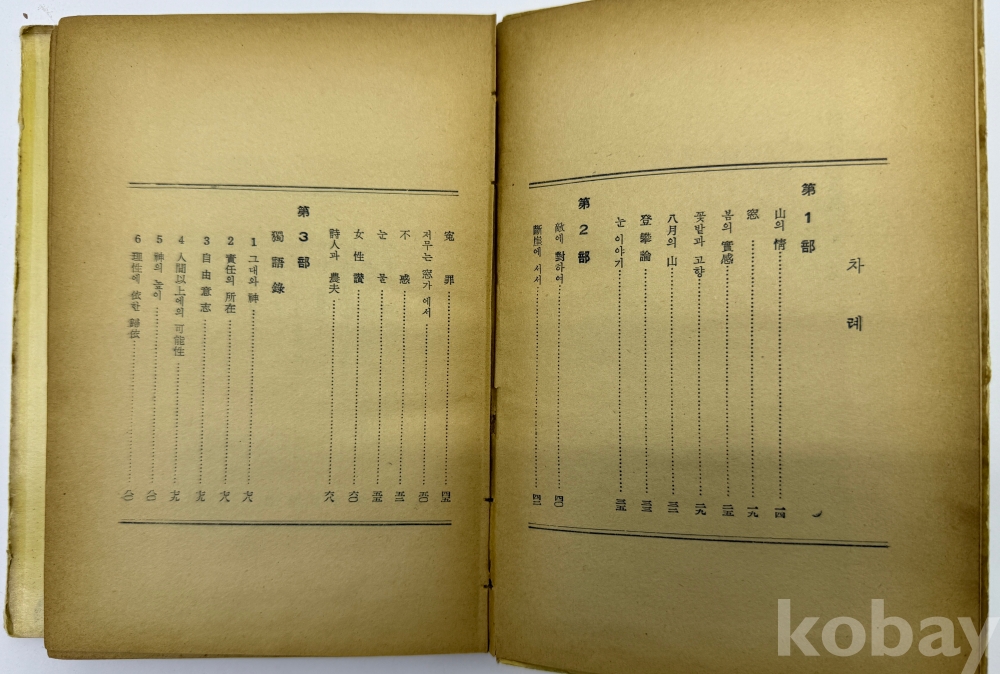 차례
第1部
山의 情 一四
窓 一九
봄의 實感 二五
꽃밭과 고향 二九
八月의 山 三二
登攀論 三三
눈 이야기 三五
第2部
敵에 對하여 四〇
斷崖에 서서 四二
冤罪 四五
저무는 窓가에서 五〇
不惑 五二
눈물 五五
女性讚 六〇
詩人과 農夫 六八
第3部
獨語錄
1 그대와 神
2 責任의 所在
3 自由意志
4 人間以上에의 可能性
5 神의 눈이
6 理性에 依한 歸依
kobay